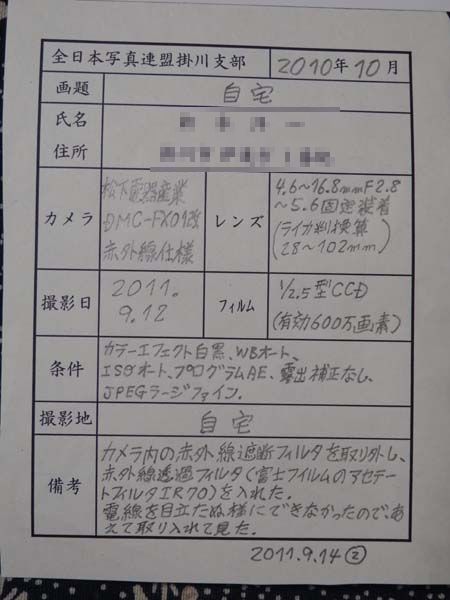 全日本写真連盟掛川支部 2010年10月
画題 自宅
氏名
住所
カメラ 松下電器産業
DMC-FX01改
赤外線仕様
レンズ 4.6〜16.8mmF2.8
〜5.6固定装着
(ライカ判換算
28〜102mm)
撮影日 2011.
9.12
フィルム 1/2.5型CCD
(有効600万画素)
条件 カラーエフェクト白黒、WBオート、
ISOオート、プログラムAE、露出補正なし、
JPEGラージファイン.
撮影地 自宅
備考 カメラ内の赤外線遮断フィルタを取り外し、
赤外線透過フィルタ(富士フイルムのアセテー
トフィルタIR70)を入れた.
電線を目立たぬ様にできなかったので、あ
えて取り入れて見た.
2011.9.14②